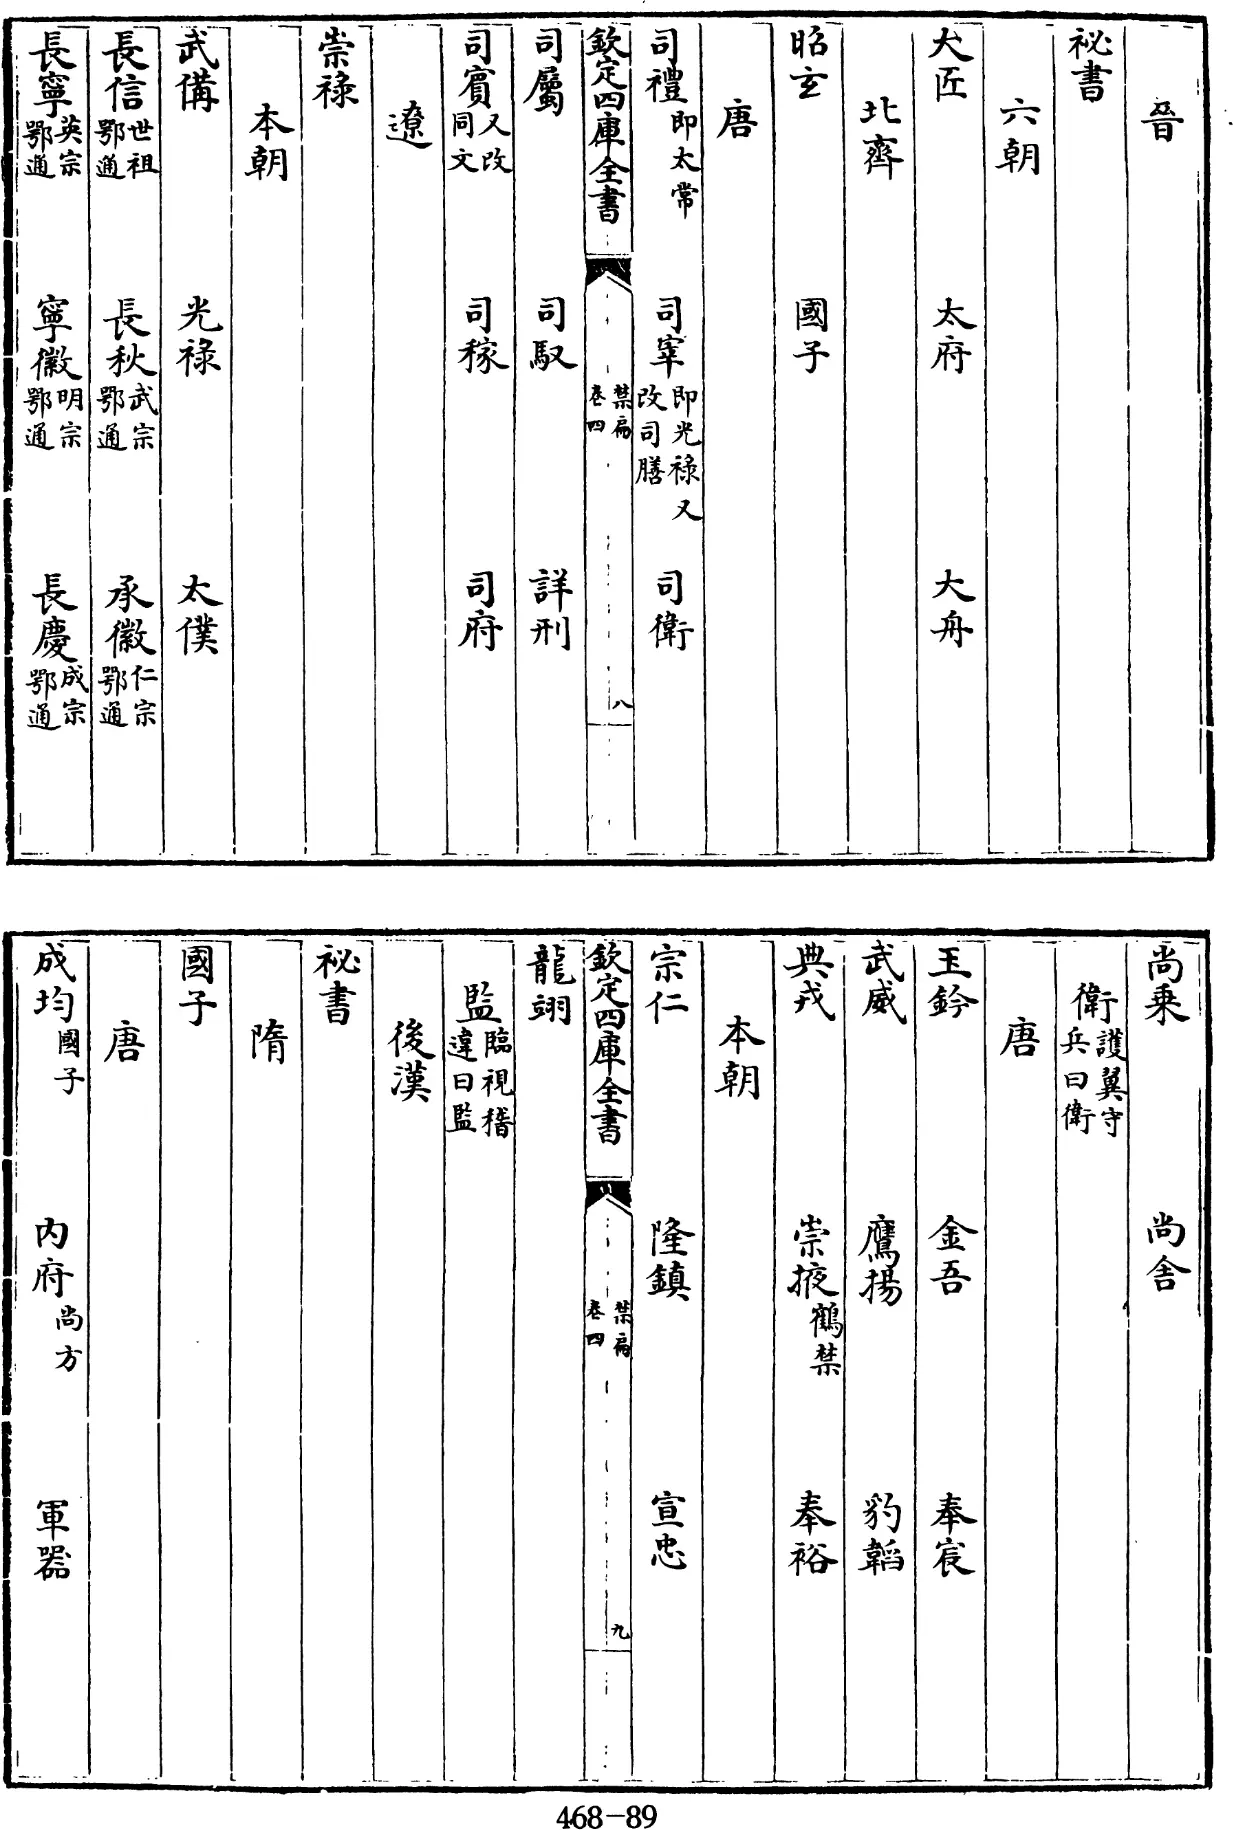 晉
秘書
六朝
大匠　太府　大舟
北齊
昭玄　國子
唐
司禮即太常　司宰即光祿又改司膳　司衛
欽定四庫全書　禁扁卷四　八
司屬　司馭　詳刑
司賓又改同文　司稼　司府
遼
崇祿
本朝
武備　光祿　太僕
長信世祖鄂通　長秋武宗鄂通　承徽仁宗鄂通
長寧英宗鄂通　寧徽明宗鄂通　長慶成宗鄂通
尚乘　尚舍
衛護翼守兵曰衛
唐
玉鈐　金吾　奉宸
武威　鷹揚　豹韜
典戎　崇掖鶴禁　奉裕
本朝
宗仁　隆鎮　宣忠
欽定四庫全書　禁扁卷四　九
龍翊
監臨視稽違曰監
後漢
秘書
隋
國子
唐
成均國子　內府尚方　軍器
468-89